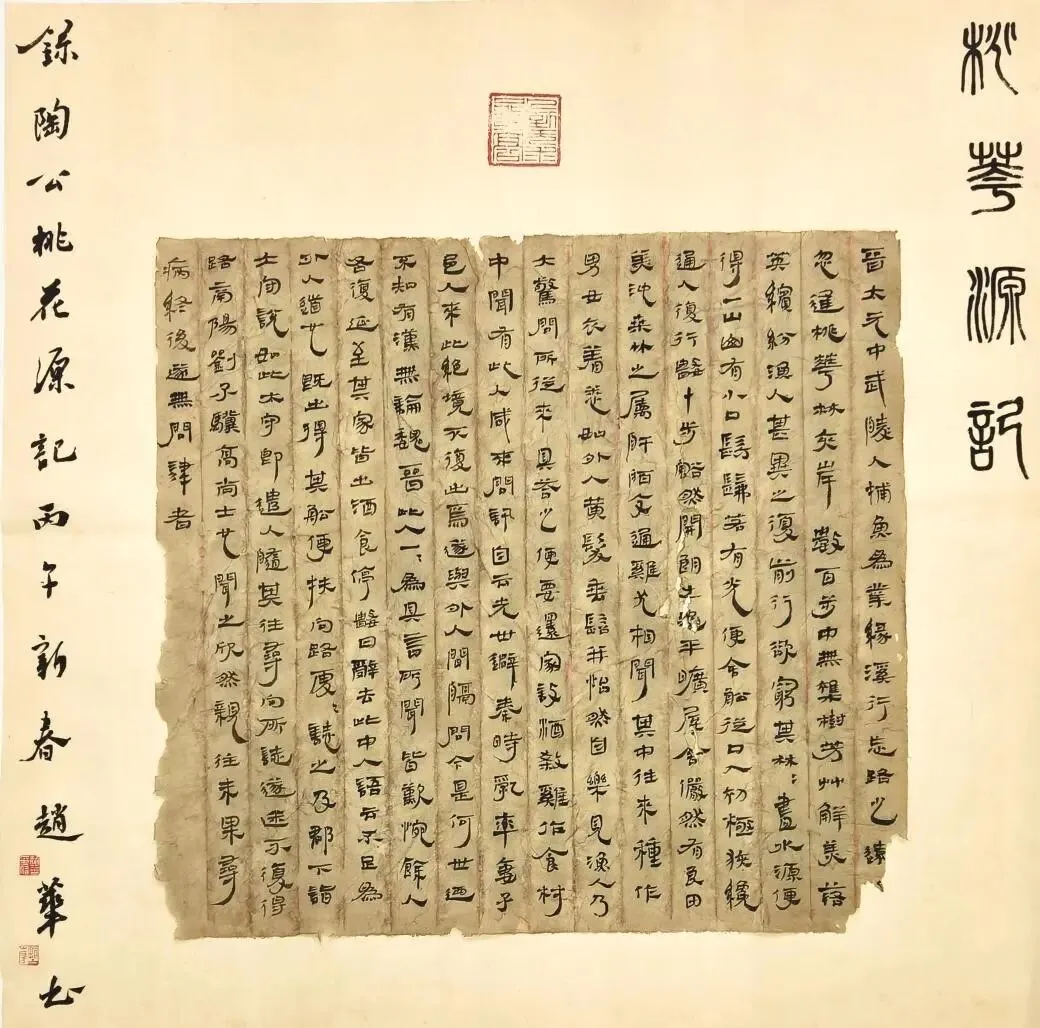 桃華源記
晉太元中武陵人捕魚為業緣溪行忘路之遠
忽逢桃華林夾岸數百步中無雜樹芳艸鮮美落
英繽紛漁人甚異之復前行欲窮其林〻盡水源便
得一山山有小口髣髴若有光便舍船從口入初極狹纔
通人復行數十步豁然開朗土地平曠屋舍儼然有良田
美池桑竹之屬阡陌交通雞犬相聞其中往來種作
男女衣著悉如外人黃髮垂髫并怡然自樂見漁人乃
大驚問所從來具答之便要還家設酒殺雞作食村
中聞有此人咸來問訊自云先世避秦時亂率妻子
邑人來此絕境不復出焉遂與外人間隔問今是何世迺
不知有漢無論魏晉此人一〻為具言所聞皆歎惋餘人
各復延至其家皆出酒食停數日辭去此中人語云不足為
外人道也既出得其船便扶向路處〻誌之及郡下詣
太守說如此太守即遣人隨其往尋向所誌遂迷不復得
路南陽劉子驥高尚士也聞之欣然親往未果尋
病終後遂無問津者
錄陶公桃花源記丙午新春趙華書